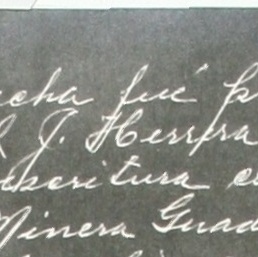 echa fué p
J. Herrera
escritura
Minera Guad